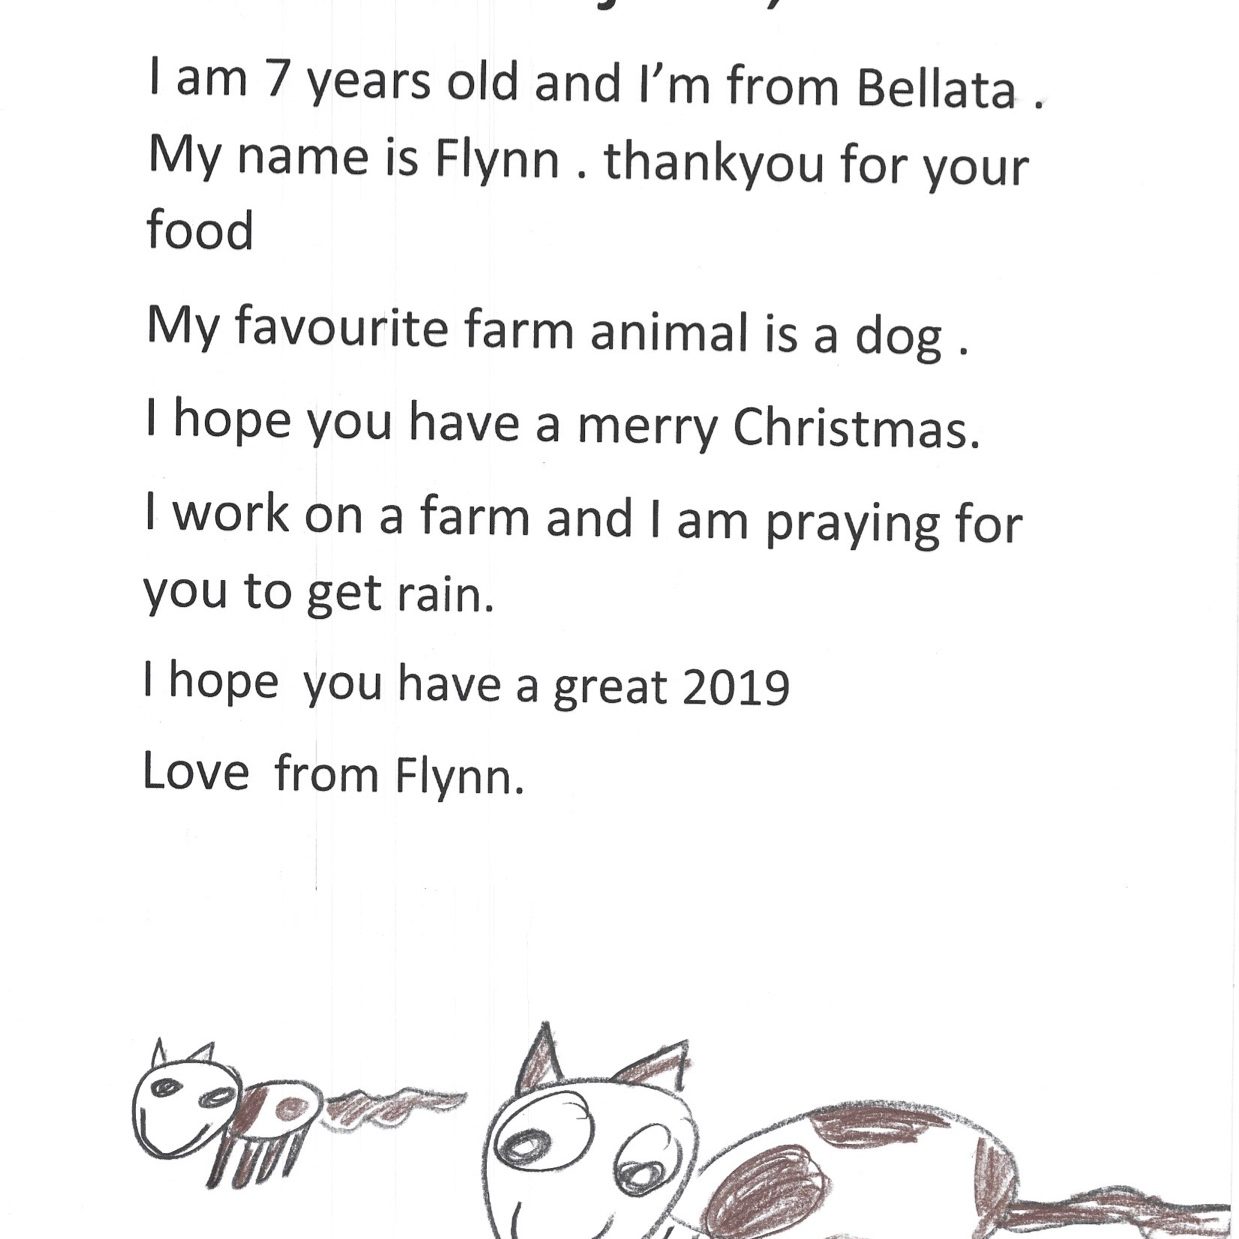 I am 7 years old and I'm from Bellata .
My name is Flynn . thankyou for your
food
My favourite farm animal is a dog .
I hope you have a merry Christmas.
I work on a farm and I am praying for
you to get rain.
I hope you have a great 2019
Love from Flynn.